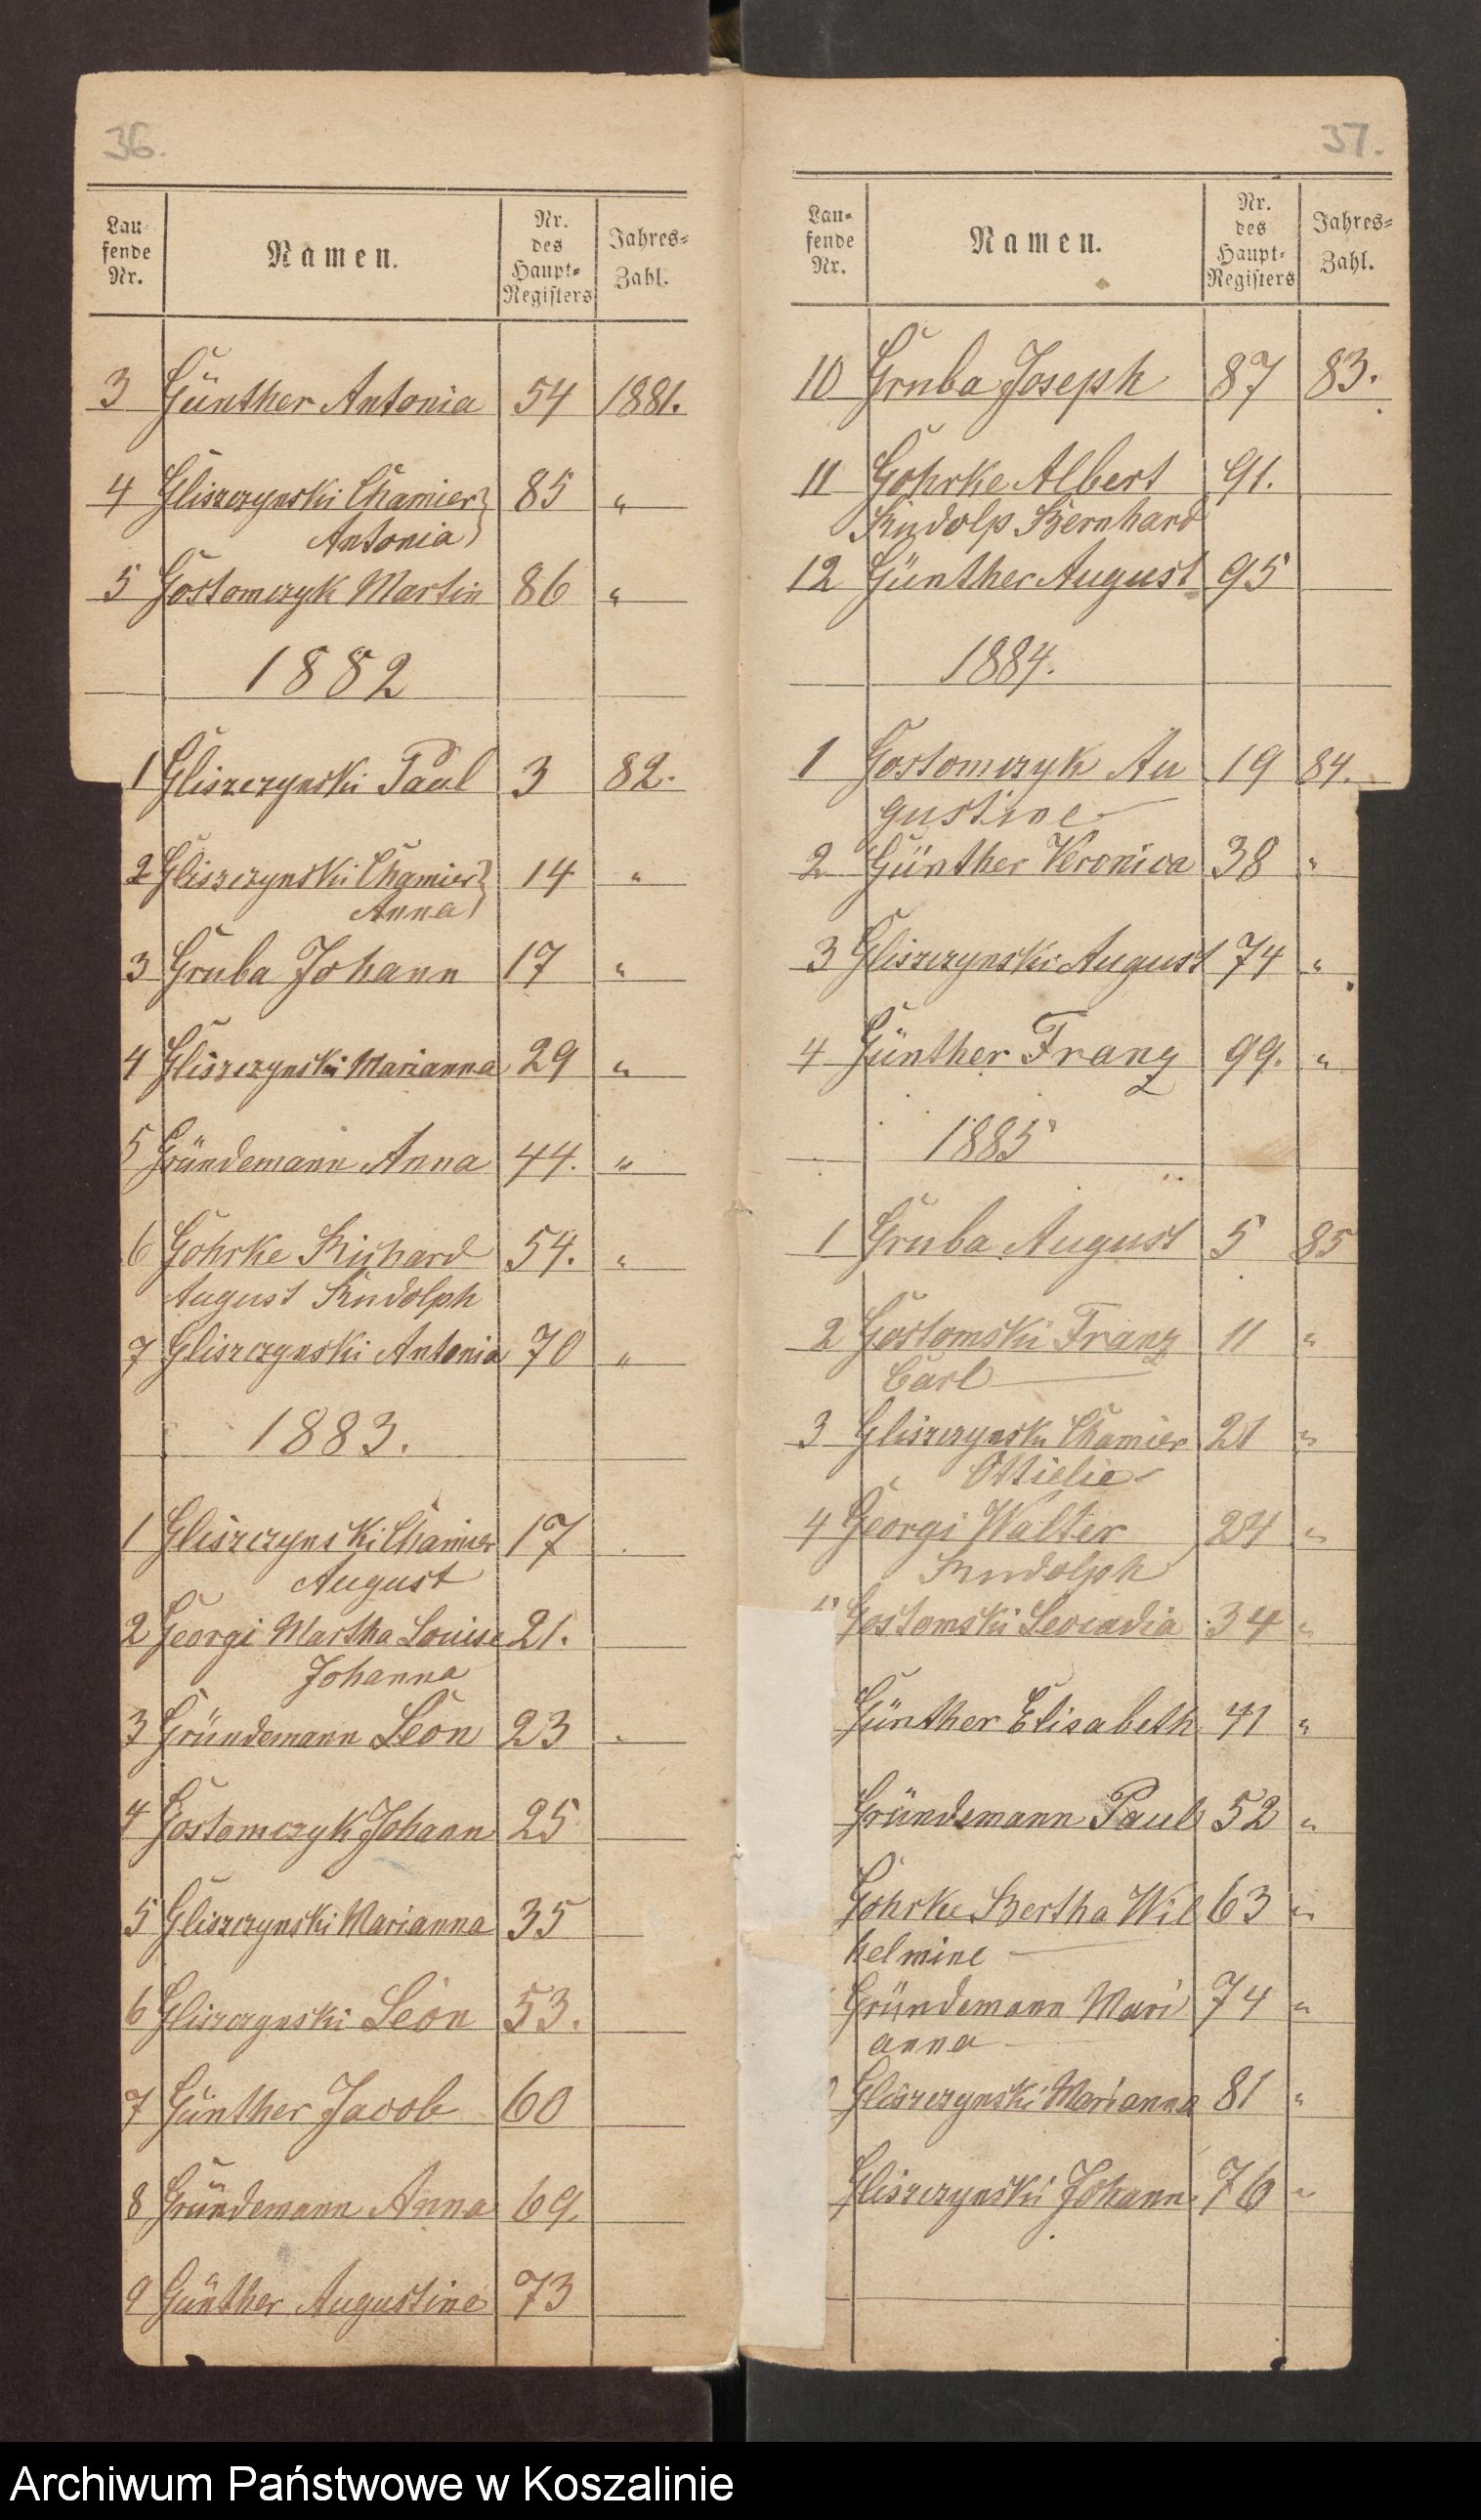 36.
Lau-
fende
Nr.
Namen.
Nr.
des
Haupt-
Registers
Jahres-
Zahl.
3 Günther Antonia 54 1881.
4 Gliszczynski Chamier 85 "
Antonia
5 Gostomczyk Martin 86 "
1882
1 Gliszczynski Paul 3 82.
2 Gliszczynski Chamier 14 "
Anna
3 Gruba Johann 17 "
4 Gliszczynski Marianna 29 "
5 Gründemann Anna 44. "
6 Gohrke Richard 54. "
August Rudolph
7 Gliszczynski Antonia 70 "
1883.
1 Gliszczynski Chamier 17
August
2 Georgi Martha Louise 21.
Johanna
3 Gründemann Leon 23
4 Gostomczyk Johann 25
5 Gliszczynski Marianna 35
6 Gliszczynski Leon 53.
7 Günther Jacob 60
8 Gründemann Anna 69.
9 Günther Augustine 73
37.
Lau-
fende
Nr.
Namen.
Nr.
des
Haupt-
Registers
Jahres-
Zahl.
10 Gruba Joseph 87 83.
11 Gohrke Albert 91.
Rudolp Bernhard
12 Günther August 95
1884.
1 Gostomczyk Au 19 84.
gustine
2 Günther Veronica 38 "
3 Gliszczynski August 74 "
4 Günther Franz 99. "
1885
1 Gruba August 5 85
2 Gostomski Franz 11 "
Carl
3 Gliszczynski Chamier 21 "
Ottielie
4 Georgi Walter 24 "
Rudolph
Gostomski Leocadia 34 "
Günther Elisabeth 41 "
Gründemann Paul 52 "
Gohrke Bertha Wil 63 "
helmine
Gründemann Mari 74 "
anna
Gliszczynski Marianna 81 "
Gliszczynski Johann 76 "
Archiwum Państwowe w Koszalinie